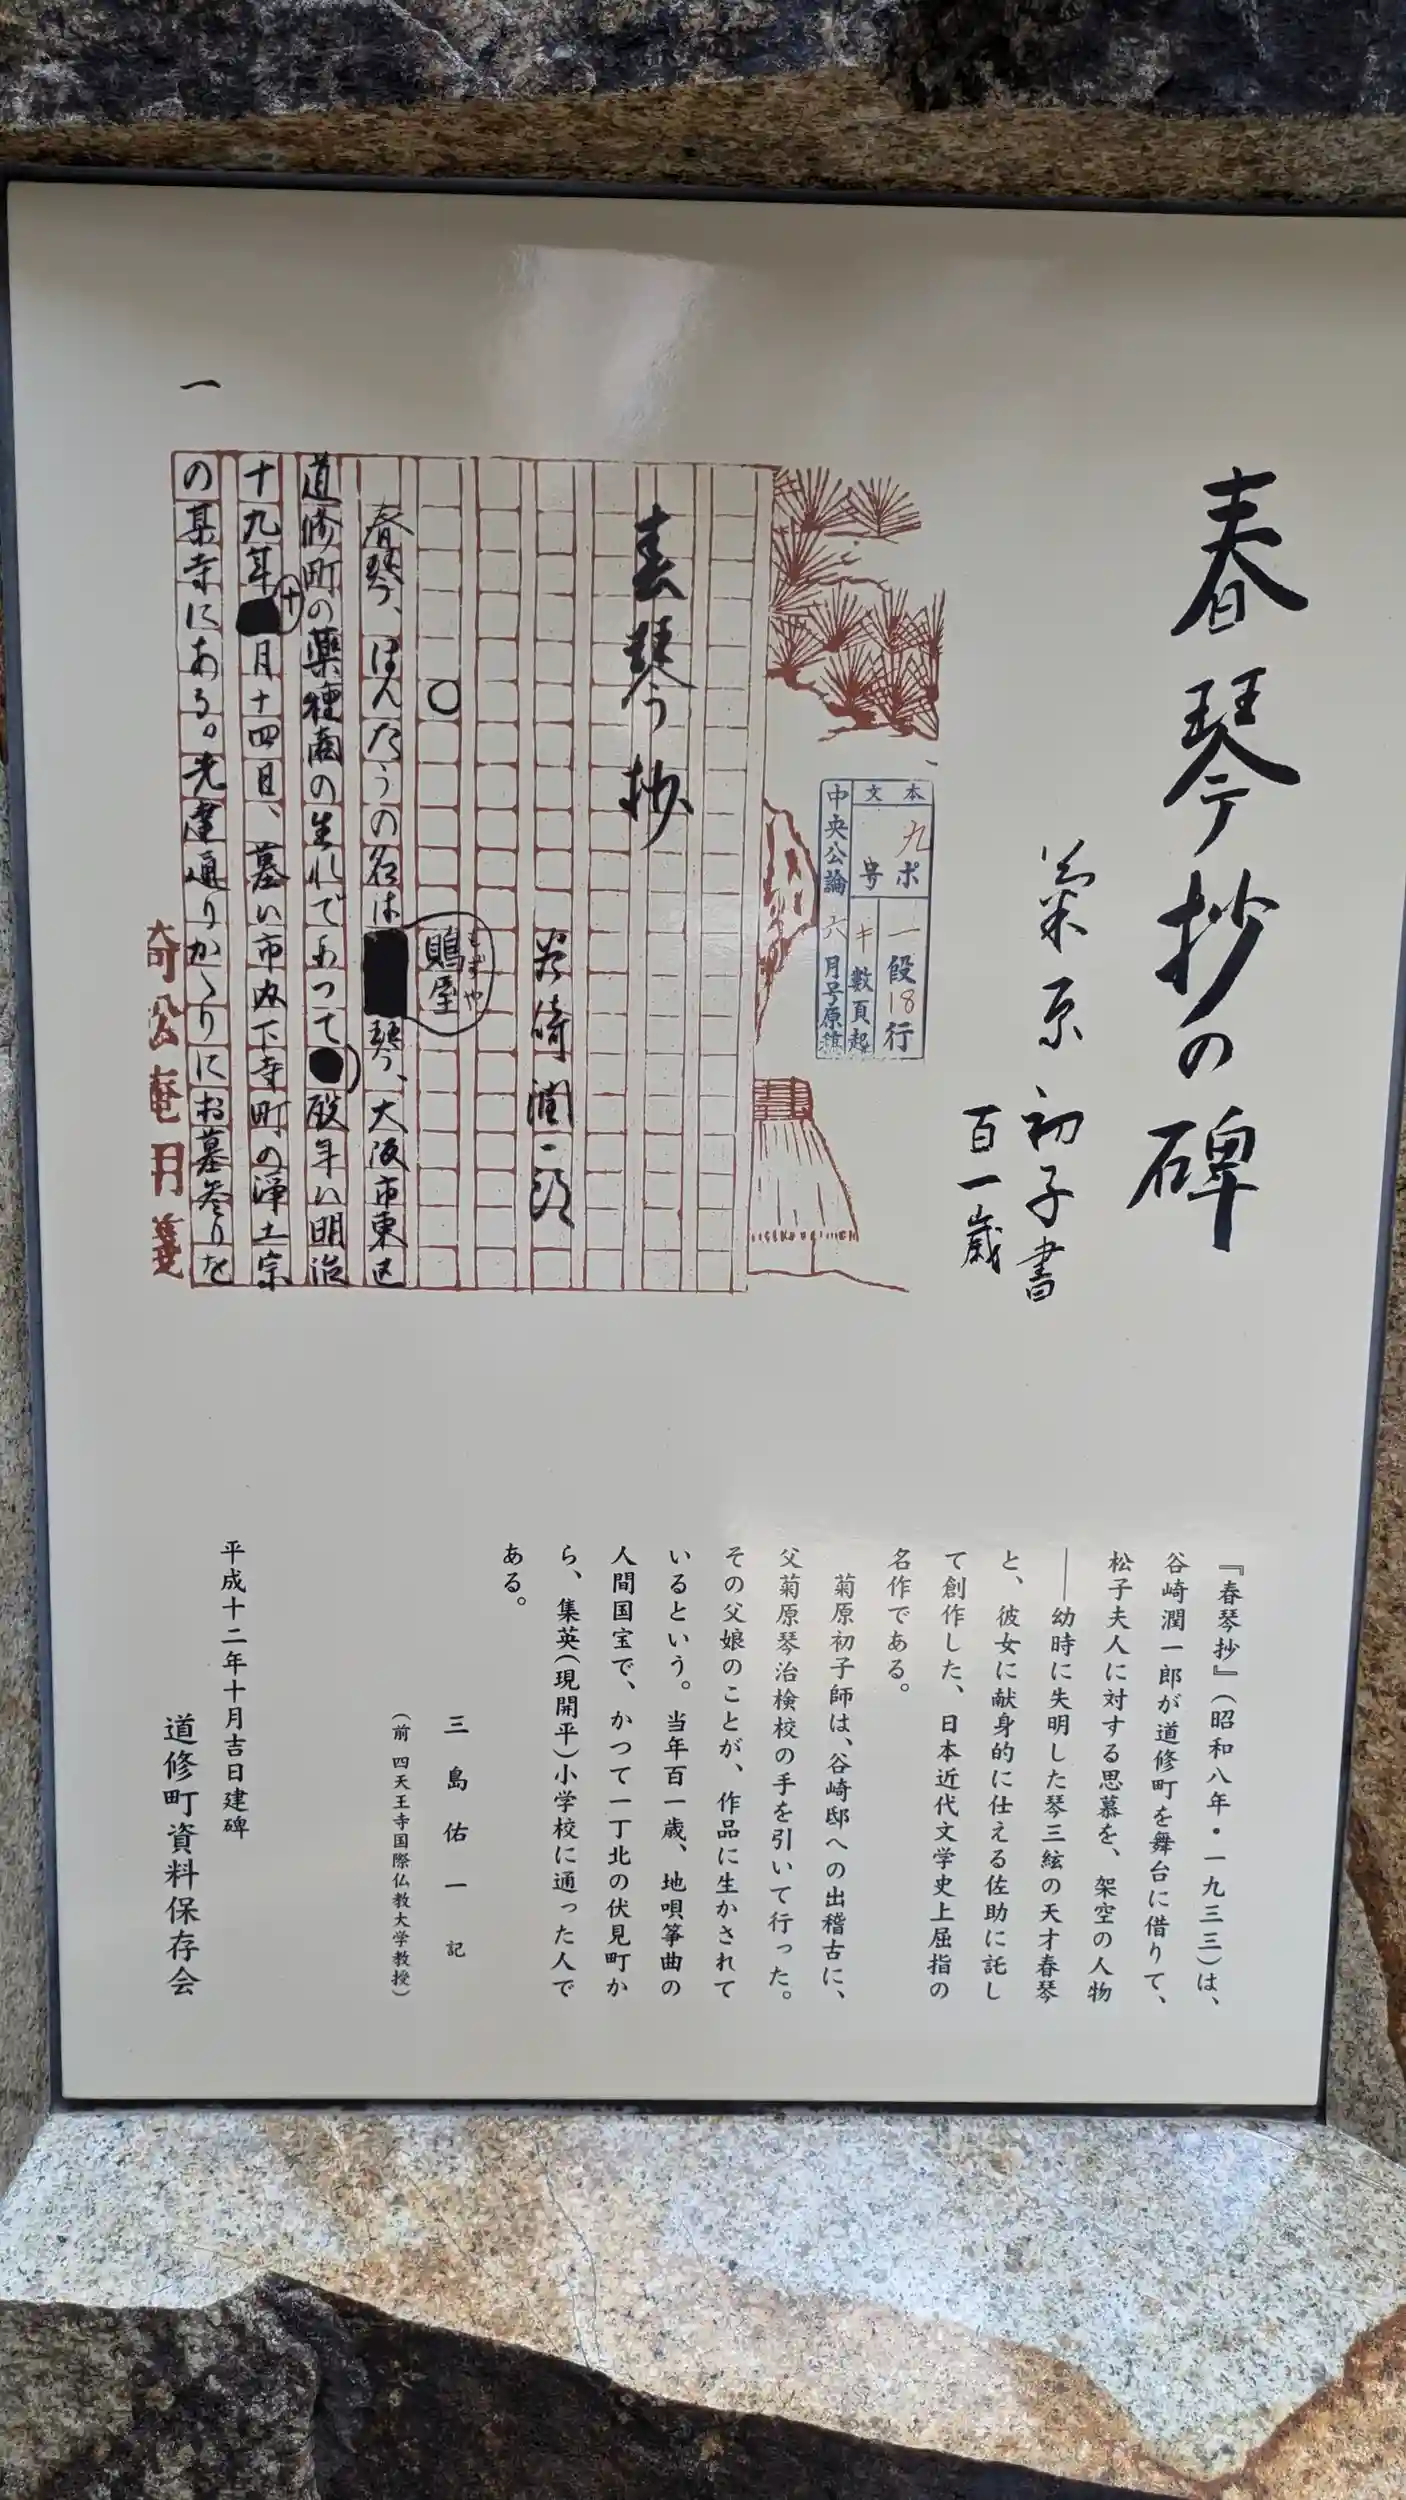 春琴抄の碑
菊原初子書
百一歳
本文
九ポ
一段18行
号
数頁起
中央公論 六月号原稿
春琴抄
谷崎潤一郎
○
鵙屋
もずや
春琴、ほんたうの名は琴、大阪市東区
道修町の薬種商の生れであつて歿年ハ明治
十九年十月十四日、墓ハ市内下寺町の浄土宗
の某寺にある。先達通りかゝりにお墓参りを
一
『春琴抄』(昭和八年・一九三三)は、
谷崎潤一郎が道修町を舞台に借りて、
松子夫人に対する思慕を、架空の人物
――幼時に失明した琴三絃の天才春琴
と、彼女に献身的に仕える佐助に託し
て創作した、日本近代文学史上屈指の
名作である。
菊原初子師は、谷崎邸への出稽古に、
父菊原琴治検校の手を引いて行った。
その父娘のことが、作品に生かされて
いるという。当年百一歳、地唄箏曲の
人間国宝で、かつて一丁北の伏見町か
ら、集英(現開平)小学校に通った人で
ある。
三島佑一 記
(前 四天王寺国際仏教大学教授)
平成十二年十月吉日建碑
道修町資料保存会